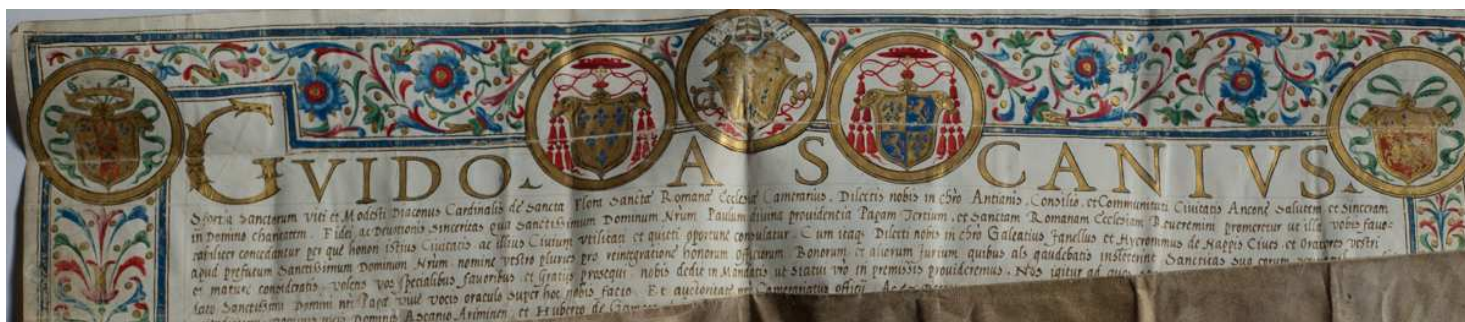 GVIDO. A S CANIVS.
Sfortia Sanctorum Viti et Modesti Diaconus Cardinalis de Sancta Flora Sancte Romane Ecclesie Camerarius. Dilectis nobis in chro Antianis, Consilio, et Communitati Civitatis Ancone Salutem et Sinceram
in Domino charitatem. Fidei, ac Devotionis Sinceritas qua Sanctissimum Dominum Nrum Paulum divina providentia Papam Tertium, et Sanctam Romanam Ecclesiam Reveremini promeretur ut illa vobis favo-
rabiliter concedantur per que honori istius Civitatis ac illius Civium utilitati et quieti oportune consulatur. Cum itaq Dilecti nobis in chro Galeatius Fanellus et Hyeronimus de Nappis Cives et Oratores vestri
apud prefatum Sanctissimum Dominum Nrum nomine vestro pluries pro reintegratione honorum officiorum Bonorum et aliorum Jurium quibus als gaudebatis institerint Sanctitas Sua
et mature consideratis, volens vos specialibus favoribus et Gratijs prosequi nobis dedit in Mandatis ut Statui vro in premissis provideremus. Nos igitur ad
Sanctissimi Domini nri Pape vive vocis oraculo super hoc nobis facto. Et auctoritate nri Camerariatus officij
Dominis Ascanio Ariminen, et Huberto de